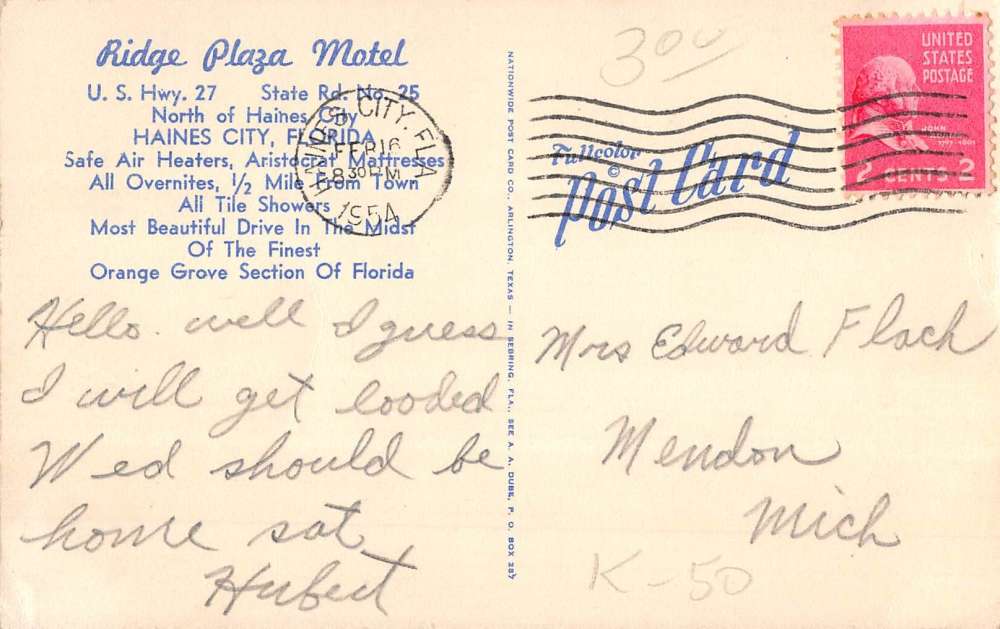 Ridge Plaza Motel
U. S. Hwy. 27 State Rd. No. 25
North of Haines City
HAINES CITY, FLORIDA
Safe Air Heaters, Aristocrat Mattresses
All Overnites, 1/2 Mile From Town
All Tile Showers
Most Beautiful Drive In The Midst
Of The Finest
Orange Grove Section Of Florida
Hello. well I guess
I will get looded
Wed should be
home sat
Hubert
NATIONWIDE POST CARD CO., ARLINGTON, TEXAS — IN SEBRING, FLA., SEE A. A. DUBE, P. O. BOX 287
CITY, FLA
FEB 16
8 30 PM
1954
300
UNITED
STATES
POSTAGE
JOHN
2 CENTS 2
Fullcolor
©
Post Card
Mrs Edward Flach
Mendon
Mich
K-50